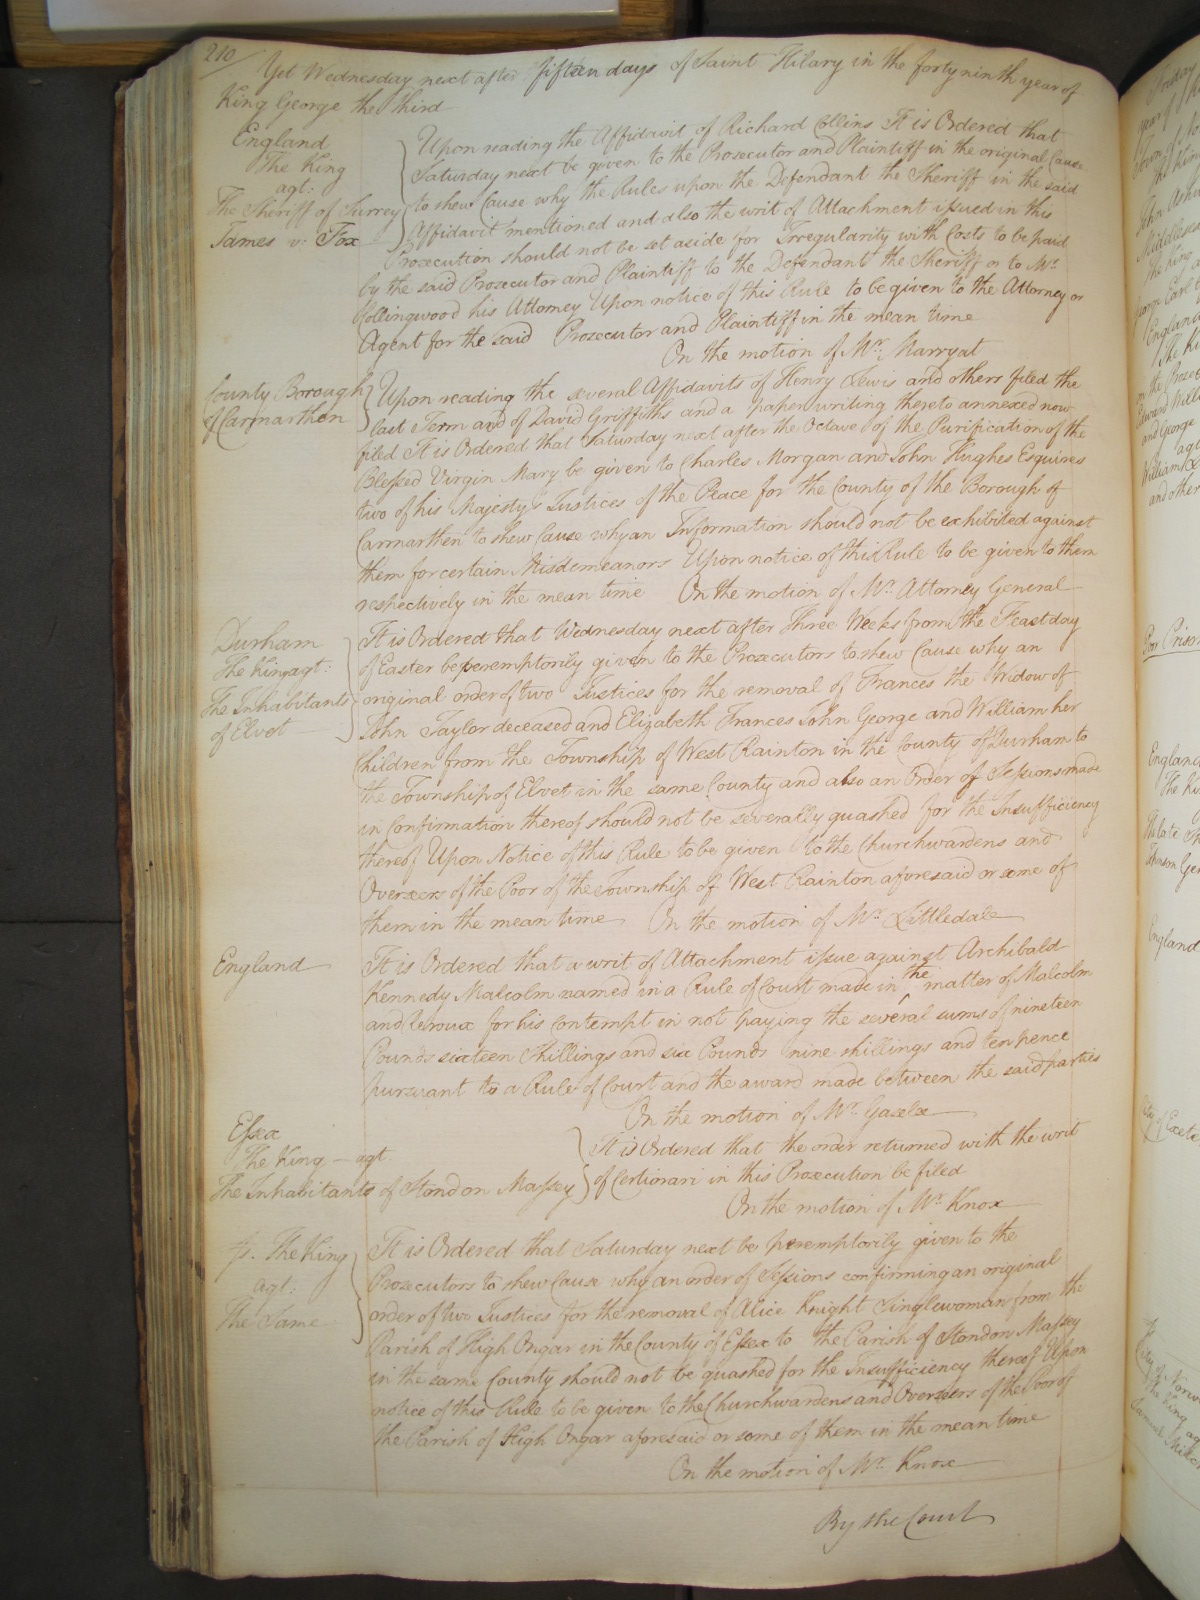 210
Yet Wednesday next after fifteen days of Saint Hilary in the forty ninth year of
King George the Third
England
The King
agt:
The Sheriff of Surrey
James v: Fox
Upon reading the Affidavit of Richard Collins It is Ordered that
Saturday next be given to the Prosecutor and Plaintiff in the original Cause
to shew Cause why the Rules upon the Defendant the Sheriff in the said
Affidavit mentioned and also the writ of Attachment issued in this
Prosecution should not be set aside for Irregularity with Costs to be paid
by the said Prosecutor and Plaintiff to the Defendant the Sheriff or to Mr.
Hollingwood his Attorney Upon notice of this Rule to be given to the Attorney or
Agent for the said Prosecutor and Plaintiff in the mean time
On the motion of Mr. Marryat
County Borough
of Carmarthen
Upon reading the several Affidavits of Henry Lewis and others filed the
last Term and of David Griffiths and a paper writing thereto annexed now
filed It is Ordered that Saturday next after the Octave of the Purification of the
Blessed Virgin Mary be given to Charles Morgan and John Hughes Esquires
two of his Majesty's Justices of the Peace for the County of the Borough of
Carmarthen to shew Cause why an Information should not be exhibited against
them for certain Misdemeanors Upon notice of this Rule to be given to them
respectively in the mean time On the motion of Mr. Attorney General
Durham
The King agt:
The Inhabitants
of Elvet
It is Ordered that Wednesday next after Three Weeks from the Feast day
of Easter be peremptorily given to the Prosecutors to shew Cause why an
original order of two Justices for the removal of Frances the Widow of
John Taylor deceased and Elizabeth Frances John George and William her
Children from the Township of West Rainton in the County of Durham to
the Township of Elvet in the same County and also an Order of Sessions made
in Confirmation thereof should not be severally quashed for the Insufficiency
thereof Upon Notice of this Rule to be given to the Churchwardens and
Overseers of the Poor of the Township of West Rainton aforesaid or some of
them in the mean time On the motion of Mr. Littledale
England
It is Ordered that a writ of Attachment issue against Archibald
Kennedy Malcolm named in a Rule of Court made in the matter of Malcolm
and Leroux for his Contempt in not paying the several sums of nineteen
Pounds sixteen Shillings and six Pounds nine shillings and ten pence
pursuant to a Rule of Court and the award made between the said parties
On the motion of Mr. Gaselee
Essex
The King agt.
The Inhabitants of Stondon Massey
It is Ordered that the order returned with the writ
of Certiorari in this Prosecution be filed
On the motion of Mr. Knox
The King
agt:
The Same
It is Ordered that Saturday next be peremptorily given to the
Prosecutors to shew Cause why an order of Sessions confirming an original
order of two Justices for the removal of Alice Knight Singlewoman from the
Parish of High Ongar in the County of Essex to the Parish of Stondon Massey
in the same County should not be quashed for the Insufficiency thereof Upon
notice of this Rule to be given to the Churchwardens and Overseers of the Poor of
the Parish of High Ongar aforesaid or some of them in the mean time
On the motion of Mr. Knox
By the Court